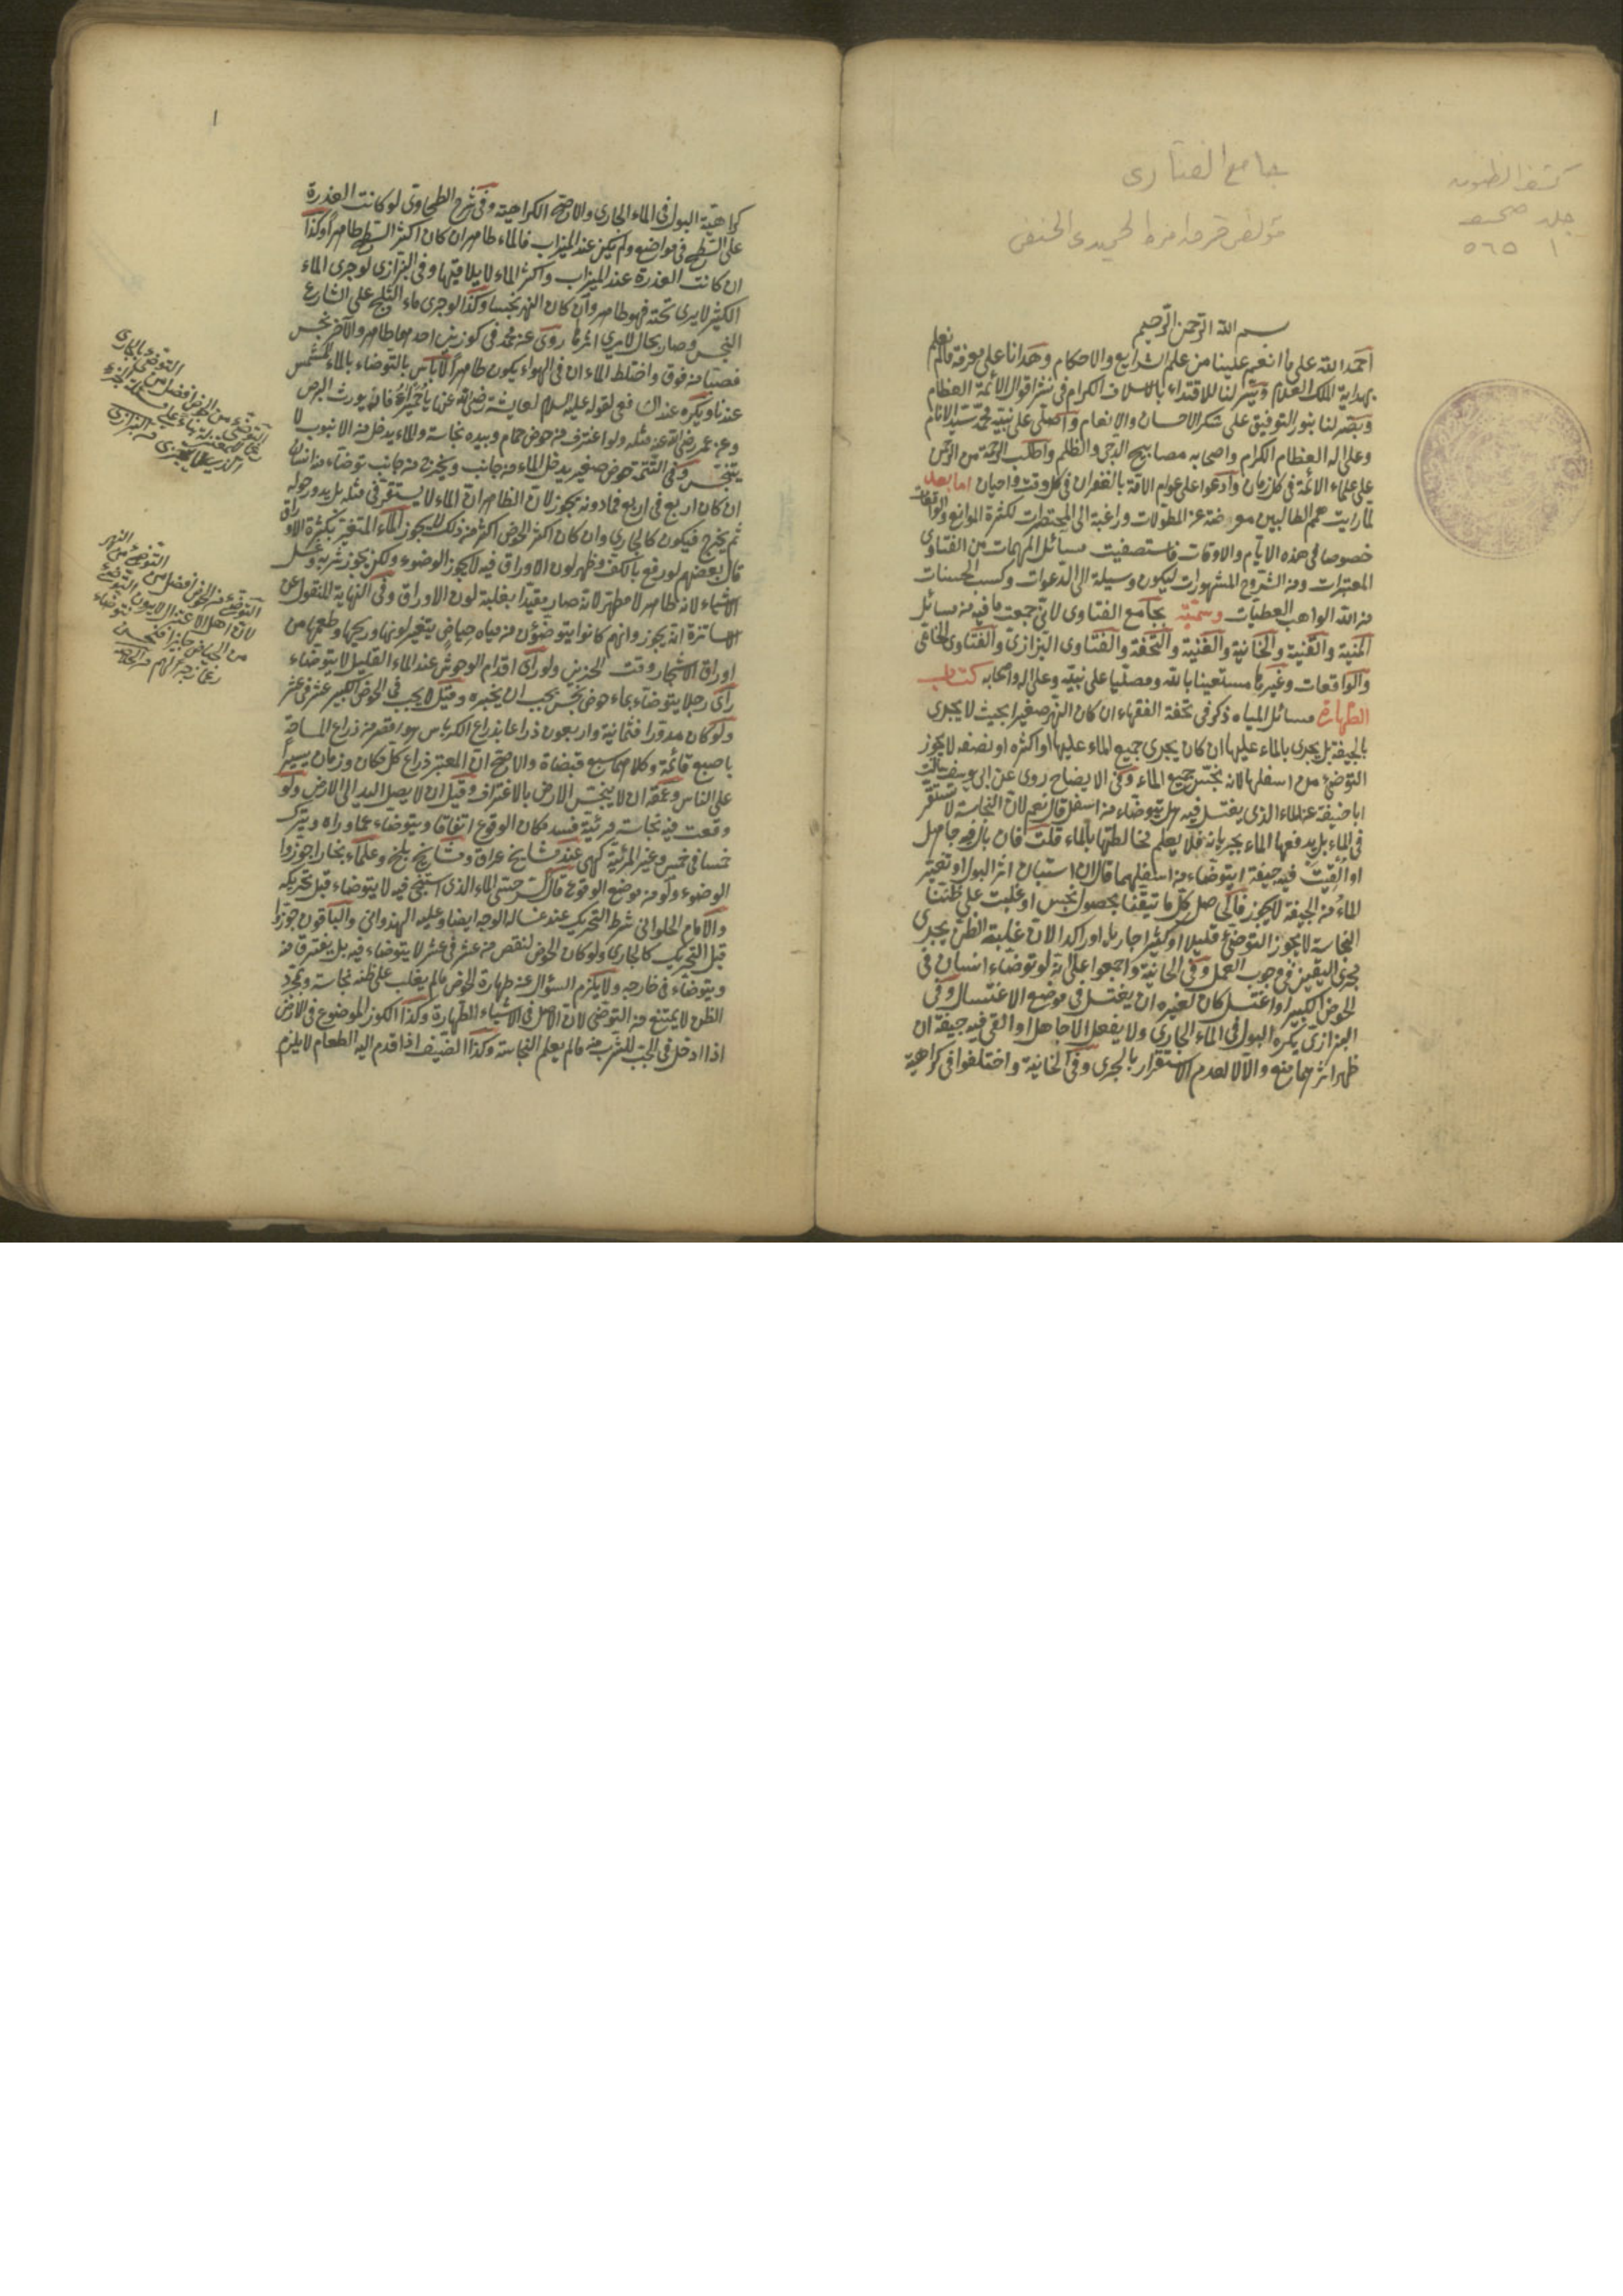 كشف الظنون
جلد صحيفه
١ ٥٦٥
جامع الفتاوى
مؤلفى قره امره الحميدى الحنفى
بسم الله الرحمن الرحيم
احمد الله على ما انعم علينا من علم الشرايع والاحكام وهدانا على معرفة مالم نعلم
بهداية الملك العلام ويسر لنا للاقتداء بالاسلاف الكرام فى نشر اقوال الائمة العظام
وبصر لنا بنور التوفيق على شكر الاحسان والانعام واصلى على نبيه محمد سيد الانام
وعلى اله العظام الكرام واصحابه مصابيح الدجى والظلم واطلب الرحمة من الرحمن
على علماء الائمة فى كل زمان وادعوا على عوام الامة بالغفران فى كل وقت واحيان اما بعد
لما رايت همم الطالبين معرضة عن المطولات وراغبة الى المختصرات لكثرة الموانع والواقعات
خصوصا فى هذه الايام والاوقات فاستصفيت مسائل المهمات من الفتاوى
المعتبرات ومن الشروح المشهورات ليكون وسيلة الى الدعوات وكسب الحسنات
من الله الواهب العطيات وسميته بجامع الفتاوى لانى جمعت ما فيه من مسائل
المنية والقنية والخانية والغنية والتحفة والفتاوى البزازى والفتاوى
والواقعات وغيرها مستعينا بالله ومصليا على نبيه وعلى اله واصحابه كتاب
الطهارة مسائل المياه ذكر فى تحفة الفقهاء ان كان النهر صغيرا بحيث لا يجرى
بالجيفة بل يجرى بالماء عليها ان كان يجرى جميع الماء عليها او اكثره او نصفه لا يجوز
التوضئ من اسفلها لانه نجس جميع الماء وفى الايضاح روى عن ابى يوسف سالت
ابا حنيفة عن الماء الذى يغتسل فيه هل يتوضاء من اسفل قال نعم لان النجاسة لا تستقر
فى الماء بل يدفعها الماء بجريانه فلا يعلم مخالطتها بالماء قلت فان بال فيه جاهل
او القيت فيه جيفة ايتوضاء من اسفلهما قال ان استبان اثر البول او تغير
الماء من الجيفة لا يجوز فالحاصل كل ما تيقنا بحصول نجس او غلبت على ظننا
النجاسة لا يجوز التوضئ قليلا او كثيرا جاريا او راكدا لان غلبة الظن يجرى
مجرى اليقين فى وجوب العمل وفى الخانية واجمعوا على انه لو توضاء انسان فى
الحوض الكبير او اغتسل كان لغيره ان يغتسل فى موضع الاغتسال وفى
البزازى يكره البول فى الماء الجارى ولا يفعل الا جاهل او القى فيه جيفة ان
ظهر اثرهما منع والا لا لعدم الاستقرار بالجرى وفى الخانية واختلفوا فى كراهية
١
كراهية البول فى الماء الجارى والاصح الكراهية وفى شرح الطحاوى لو كانت العذرة
على السطح فى مواضع ولم يكن عند الميزاب فالماء طاهر ان كان اكثر السطح طاهرا وكذا
ان كانت العذرة عند الميزاب واكثر الماء لا يلاقيها وفى البزازى لو جرى الماء
الكثير لا يرى تحته فهو طاهر وان كان النهر نجسا وكذا لو جرى ماء الثلج على الشارع
النجس وصار بحال لا يرى اثرها روى عن محمد فى كوزين احدهما طاهر والآخر نجس
فصبتا من فوق واختلط الماء ان فى الهواء يكون طاهرا لا باس بالتوضاء بالماء المشمس
عندنا ويكره عند الشافعى لقوله عليه السلام لعايشة رضى الله عنها يا حميراء فانه يورث البرص
وعن عمر رضى الله عنه مثله ولو اغترف من حوض حمام وبيده نجاسة والماء يدخل من الانبوب لا
يتنجس وفى التتمة حوض صغير يدخل الماء من جانب ويخرج من جانب توضاء منه انسان
ان كان اربع فى اربع فما دونه يجوز لان الظاهر ان الماء لا يستقر فى مثله بل يدور حوله
ثم يخرج فيكون كالجارى وان كان اكثر الحوض اكثر من ذلك لا يجوز الماء المتغير بكثرة الاوراق
قال بعضهم لو رفع بالكف وظهر لون الاوراق فيه لا يجوز الوضوء ولكن يجوز شربه وغسل
الاشياء لانه طاهر لا مطهر لانه صار مقيدا بغلبة لون الاوراق وفى النهاية المنقول عن
الاساتذة انه يجوز وانهم كانوا يتوضؤن من مياه حياض يتغير لونها وريحها وطعمها من
اوراق الاشجار وقت الخزيف ولو راى اقدام الوحوش عند الماء القليل لا يتوضاء
راى رجلا يتوضاء بماء حوض نجس يجب ان يخبره وقيل لا يجب فى الحوض الكبير عشر فى عشر
ولو كان مدورا فثمانية واربعون ذراعا بذراع الكرباس هو اقصر من ذراع المساحة
باصبع قائمة وكلاهما سبع قبضات والاصح ان المعتبر ذراع كل مكان وزمان يسيرا
على الناس وعمقه ان لا ينجس الارض بالاغتراف وقيل ان لا يصل اليد الى الارض ولو
وقعت فيه نجاسة مرئية فسد مكان الوقوع اتفاقا ويتوضاء مما وراه ويترك
خمسا فى خمس وغير المرئية كهى عند مشايخ عراق ومشايخ بلخ وعلماء بخارا جوزوا
الوضوء ولو من موضع الوقوع قال السرخسى الماء الذى استنجى فيه لا يتوضاء قبل تحريكه
والامام الحلوانى شرط التحريك عند غسالة الوجه ايضا وعليه الهندوانى والباقون جوزوا
قبل التحريك كالجارى ولو كان الحوض انقص من عشر فى عشر لا يتوضاء فيه بل يغترف منه
ويتوضاء فى خارجه ولا يلزم السؤال عن طهارة الحوض ما لم يغلب على ظنه نجاسة وبمجرد
الظن لا يمتنع من التوضئ لان الاصل فى الاشياء الطهارة وكذا الكوز الموضوع فى الارض
اذا ادخل فى الحب للشرب منه ما لم يعلم النجاسة وكذا الضيف اذا قدم اليه الطعام لا يلزم
التوضئ بالجارى
التوضئ من الحوض افضل من
رغما للمعتزلة بناء على مسئلة الجزء
من البزازى
التوضئ من النهر
التوضئ من الحوض افضل من
لان اهل الاعتزال لا يرون التوضئ
من الحياض جائزا فنحن نتوضاء
رغما لهم